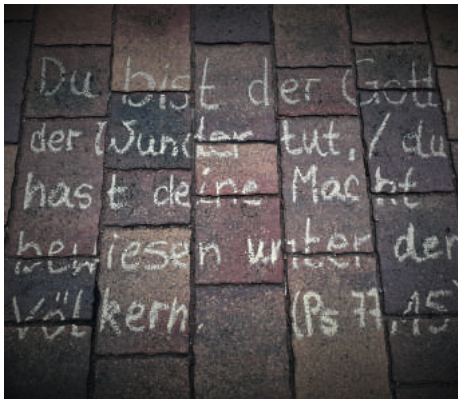 Du bist der Gott,
der Wunder tut, / du
hast deine Macht
bewiesen unter den
Völkern. (Ps 77,15)